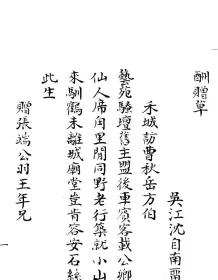 酬贈草
吳江沈自南留
禾城訪曹秋岳方伯
藝苑騷壇舊主盟後車賓客載公卿
仙人席內里閒同野老行築就小山
來馴鶴未離城廟堂豈肯容安石絲
此生
贈張端公羽王年兄